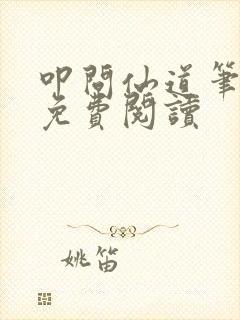 叩問仙道筆
免費閱讀
姚笛